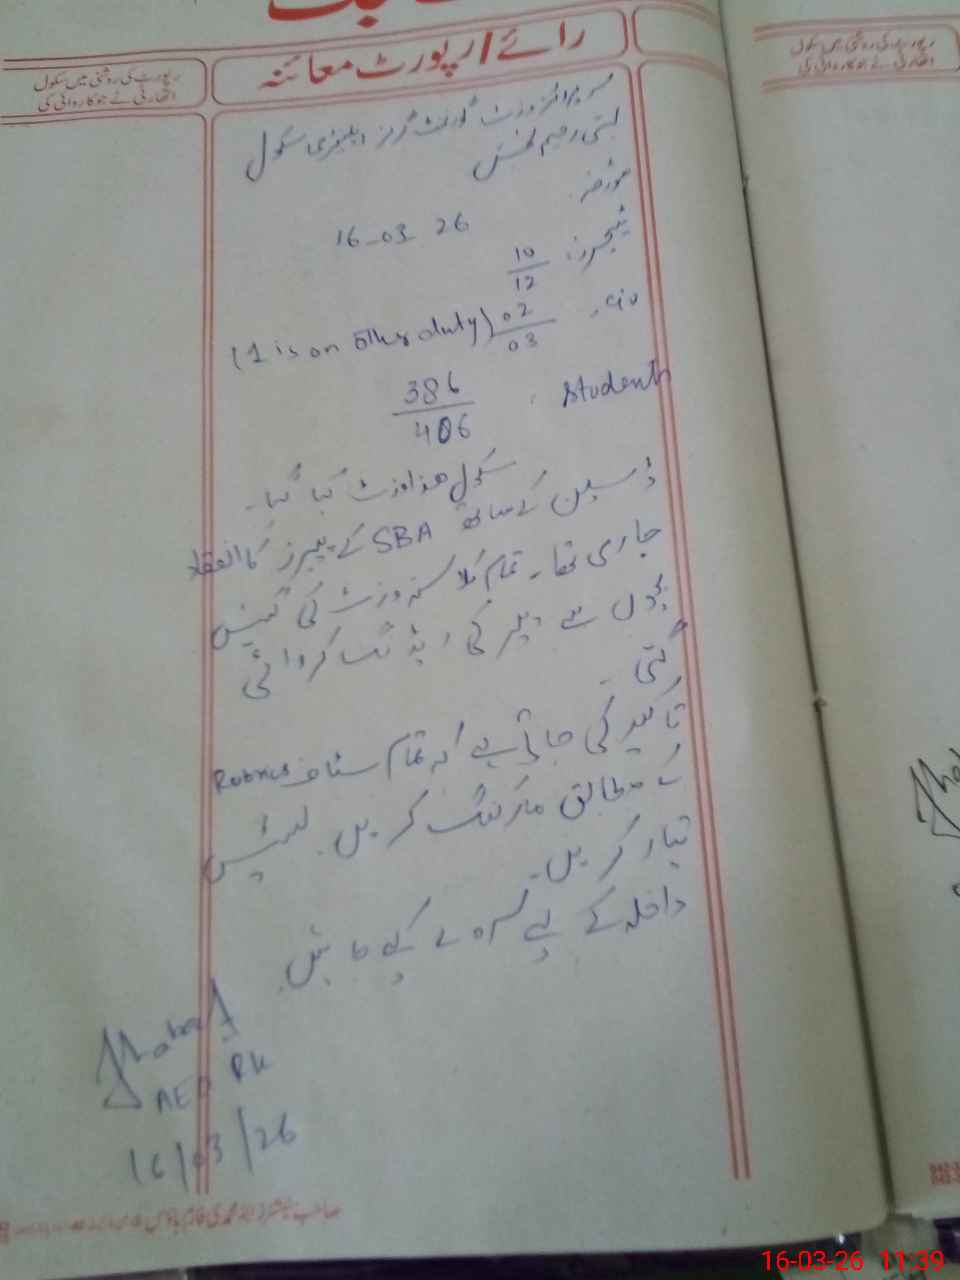 رائے / رپورٹ معائنہ
رپورٹ کی روشنی میں سکول
اتھارٹی نے جو کاروائی کی
رپورٹ کی روشنی میں سکول
اتھارٹی نے جو کاروائی کی
سرپرائز وزٹ گورنمنٹ گرلز ایلیمنٹری سکول
بستی رحیم بخش
مورخہ
16-03-26
ٹیچرز: 10/12
(1 is on other duty) 02/03
386/406 Students
سکول ھذا وزٹ کیا گیا۔
ڈسپلن کے ساتھ SBA کے پیپرز کا انعقاد
جاری تھا۔ تمام کلاسز وزٹ کی گئیں
بچوں سے پیپر کی ریڈنگ کروائی
گئی۔
تاکید کی جاتی ہے کہ تمام سٹاف Rubrics
کے مطابق مارکنگ کریں۔
تیار کریں۔
داخلہ کے لیے سروے کیے جائیں۔
AEO RK
16/03/26
16-03-26 11:39